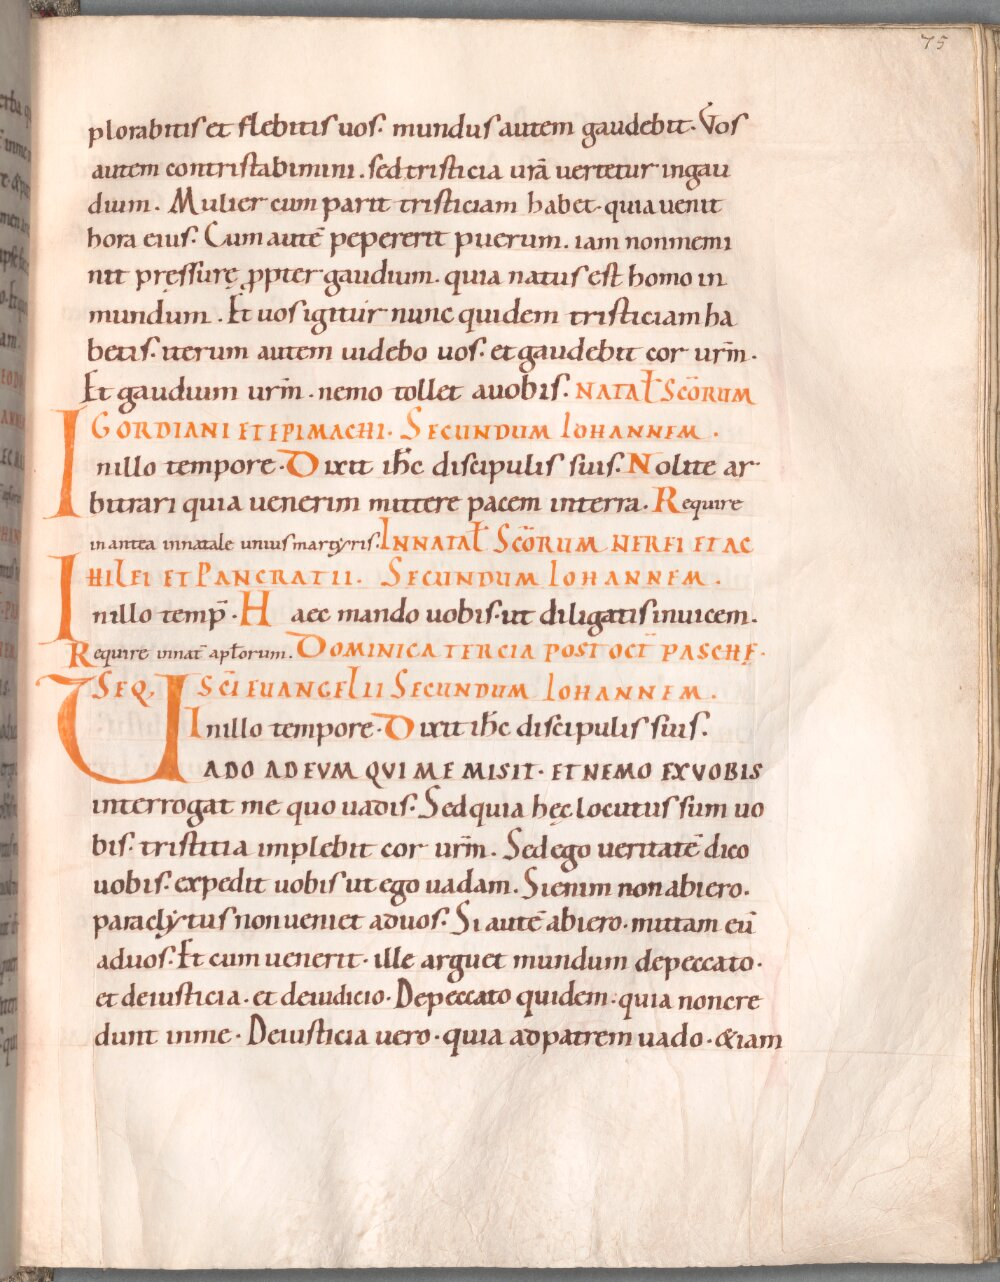 75
plorabitis et flebitis uos. mundus autem gaudebit. Vos
autem contristabimini. sed tristicia urã uertetur ingau
dium. Mulier cum parit tristiciam habet. quia uenit
hora eius. Cum autẽ pepererit puerum. iam nonmemi
nit pręssurę ꝓpter gaudium. quia natus est homo in
mundum. Et uos igitur nunc quidem tristiciam ha
betis. iterum autem uidebo uos. et gaudebit cor urm̃.
Et gaudium urm̃. nemo tollet auobis. NATAL̃ SCÕRUM
GORDIANI ET EPIMACHI. SECUNDUM IOHANNEM.
Inillo tempore. Dixit ihc̃ discipulis suis. Nolite ar
bitrari quia uenerim mittere pacem interra. Require
inantea innatale unius martyris. INNATAL̃ SCÕRUM NEREI ET AC
HILEI ET PANCRATII. SECUNDUM IOHANNEM.
Inillo temp̃. Haec mando uobis. ut diligatis inuicem.
Require innat̃ aptorum̃. DOMINICA TERCIA POST OCT̃ PASCHĘ.
SEQ. SC̃I EUANGELII SECUNDUM IOHANNEM.
Inillo tempore. Dixit ihc̃ discipulis suis.
UADO AD EUM QUI ME MISIT. ET NEMO EX VOBIS
interrogat me quo uadis. Sed quia hęc locutus sum uo
bis. tristitia implebit cor urm̃. Sed ego ueritatẽ dico
uobis. expedit uobis ut ego uadam. Si enim non abiero.
paraclytus non ueniet aduos. Si autẽ abiero. mittam eũ
aduos. Et cum uenerit. ille arguet mundum depeccato.
et deiusticia. et deiudicio. Depeccato quidem. quia noncre
dunt inme. Deiusticia uero. quia ad patrem uado. &iam